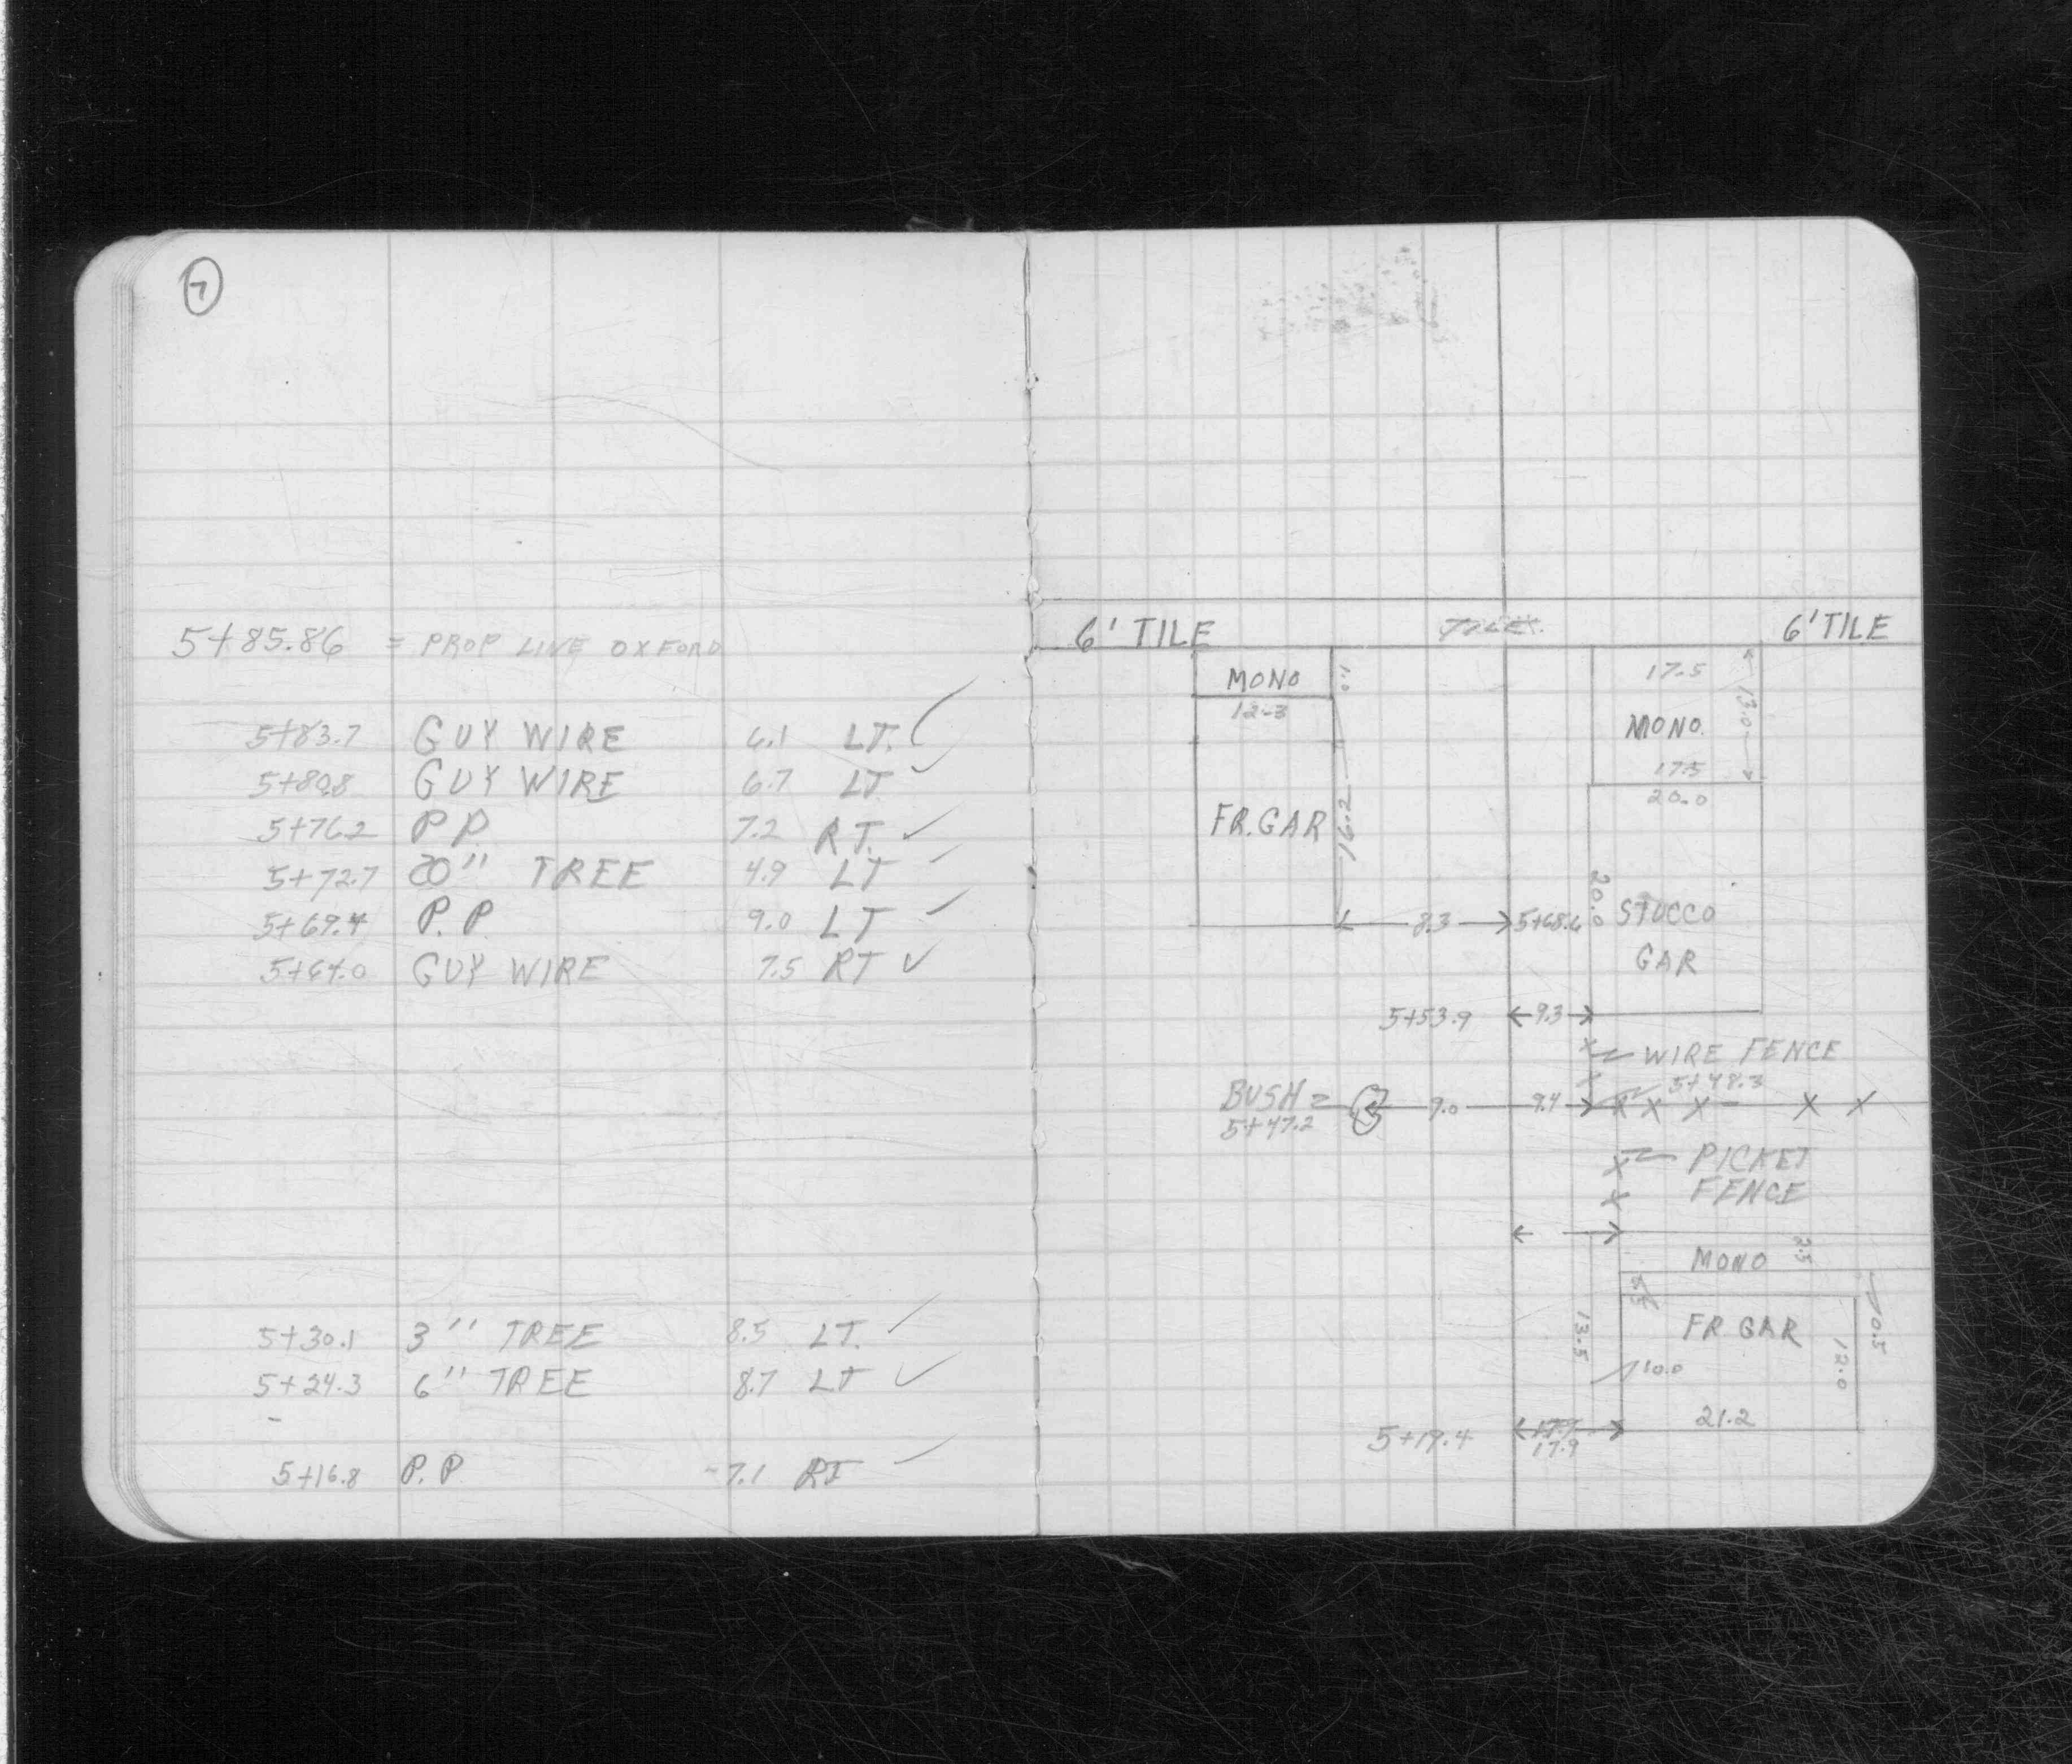 7
5+85.86 = PROP LINE OXFORD
5+83.7 GUY WIRE 6.1 LT.
5+80.8 GUY WIRE 6.7 LT
5+76.2 P.P. 7.2 RT.
5+72.7 20" TREE 4.9 LT
5+69.4 P.P. 9.0 LT
5+64.0 GUY WIRE 7.5 RT
5+30.1 3" TREE 8.5 LT.
5+24.3 6" TREE 8.7 LT
5+16.8 P.P. 7.1 RT
6' TILE TILE 6' TILE
MONO 1.0 17.5
12.3 MONO. 13.0
17.5
20.0
FR. GAR 16.2
20.0 STUCCO
8.3 5+68.6
GAR
5+53.9 9.3
WIRE FENCE
5+48.3
BUSH 9.0 9.4
5+47.2
PICKET
FENCE
MONO 2.5
FR. GAR 0.5
13.5 12.0
10.0
21.2
5+19.4 17.9